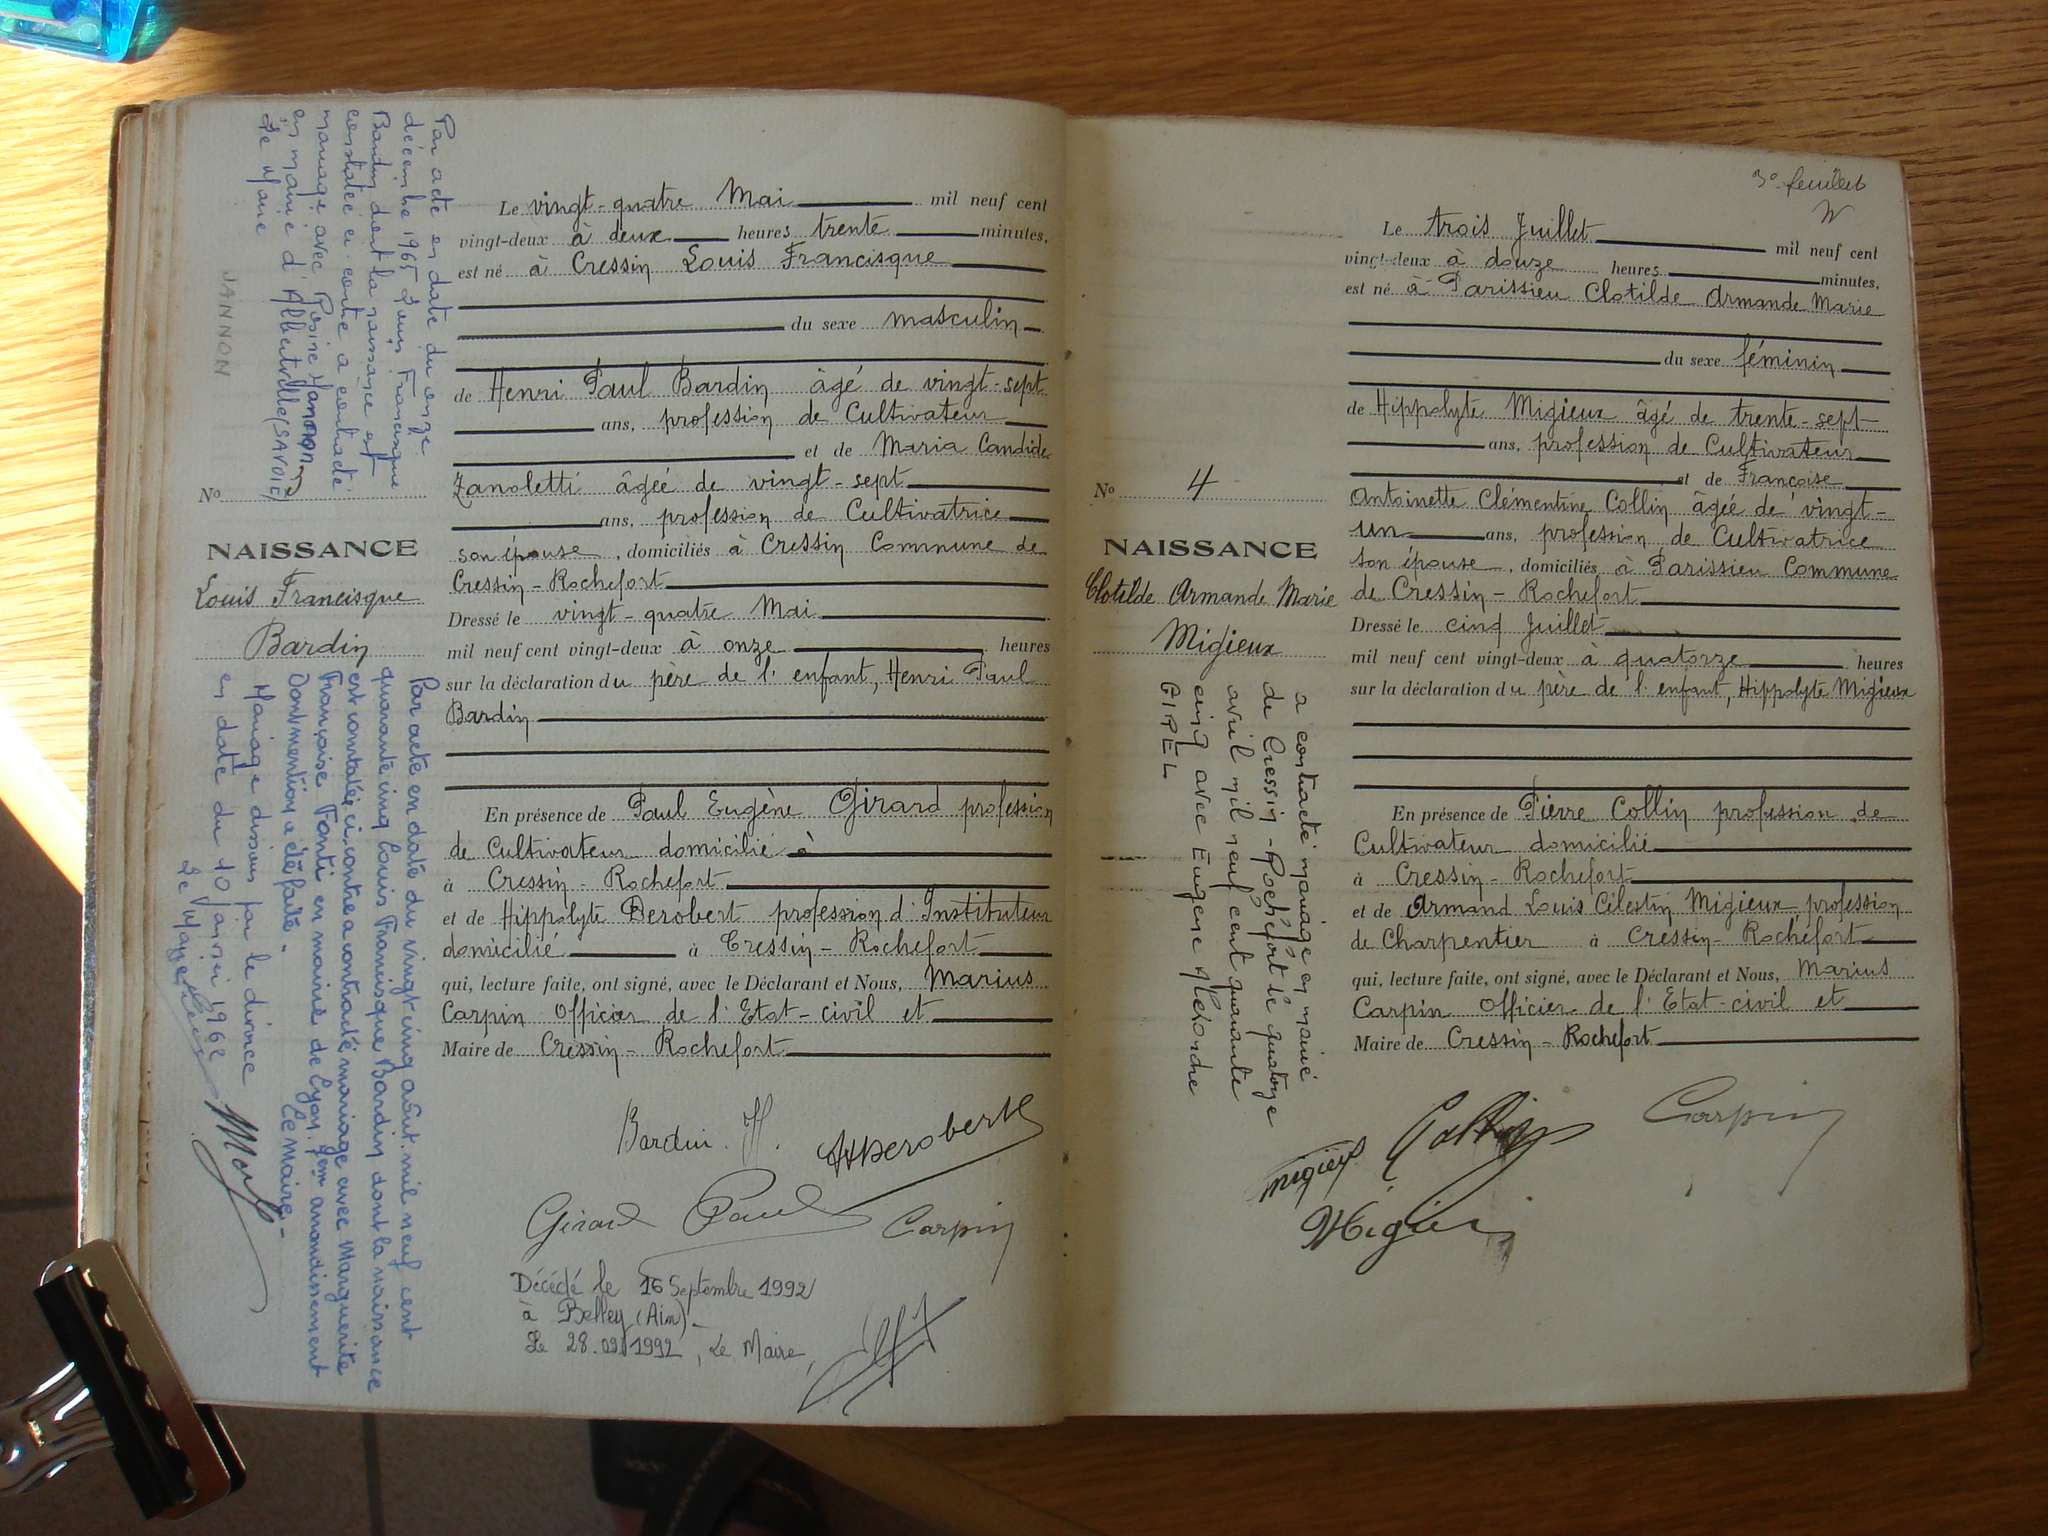 Par acte en date du onze
décembre 1965 Louis Francisque
Bardin dont la naissance est
constatée ci-contre a contracté
mariage avec Rosine Jannon
en mairie d'Albertville (SAVOIE)
Le Maire
JANNON
No
NAISSANCE
Louis Francisque
Bardin
Par acte en date du vingt cinq août mil neuf cent
quarante cinq Louis Francisque Bardin dont la naissance
est constatée ci-contre a contracté mariage avec Marguerite
Françoise Fonti en mairie de Lyon, arrondissement
Dont mention a été faite. Le Maire.
Mariage dissous par le divorce
en date du 10 janvier 1962
Le Maire
Le vingt-quatre Mai mil neuf cent
vingt-deux à deux heures trente minutes,
est né à Cressin Louis Francisque
du sexe masculin
de Henri Paul Bardin âgé de vingt-sept
ans, profession de Cultivateur
et de Maria Candide
Zanoletti âgée de vingt-sept
ans, profession de Cultivatrice
son épouse, domiciliés à Cressin Commune de
Cressin-Rochefort
Dressé le vingt-quatre Mai
mil neuf cent vingt-deux à onze heures
sur la déclaration du père de l'enfant, Henri Paul
Bardin
En présence de Paul Eugène Girard profession
de Cultivateur domicilié à
à Cressin-Rochefort
et de Hippolyte Derobert profession d'Instituteur
domicilié à Cressin-Rochefort
qui, lecture faite, ont signé, avec le Déclarant et Nous, Marius
Carpin Officier de l'Etat-civil et
Maire de Cressin-Rochefort
Bardin H. HDerobert
Girard Paul Carpin
Décédé le 16 Septembre 1992
à Belley (Ain)
Le 28.09.1992, Le Maire,
3e feuillet
No 4
NAISSANCE
Clotilde Armande Marie
Migieux
a contracté mariage en mairie
de Cressin-Rochefort le quatorze
avril mil neuf cent quarante
cinq avec Eugène Alexandre
Le trois Juillet mil neuf cent
vingt-deux à douze heures minutes,
est né à Parissieu Clotilde Armande Marie
du sexe féminin
de Hippolyte Migieux âgé de trente-sept
ans, profession de Cultivateur
et de Françoise
Antoinette Clémentine Collin âgée de vingt-
un ans, profession de Cultivatrice
son épouse, domiciliés à Parissieu Commune
de Cressin-Rochefort
Dressé le cinq Juillet
mil neuf cent vingt-deux à quatorze heures
sur la déclaration du père de l'enfant, Hippolyte Migieux
En présence de Pierre Collin profession de
Cultivateur domicilié
à Cressin-Rochefort
et de Armand Louis Célestin Migieux profession
de Charpentier à Cressin-Rochefort
qui, lecture faite, ont signé, avec le Déclarant et Nous, Marius
Carpin Officier de l'Etat-civil et
Maire de Cressin-Rochefort
Migieux Collin Carpin
Migieux